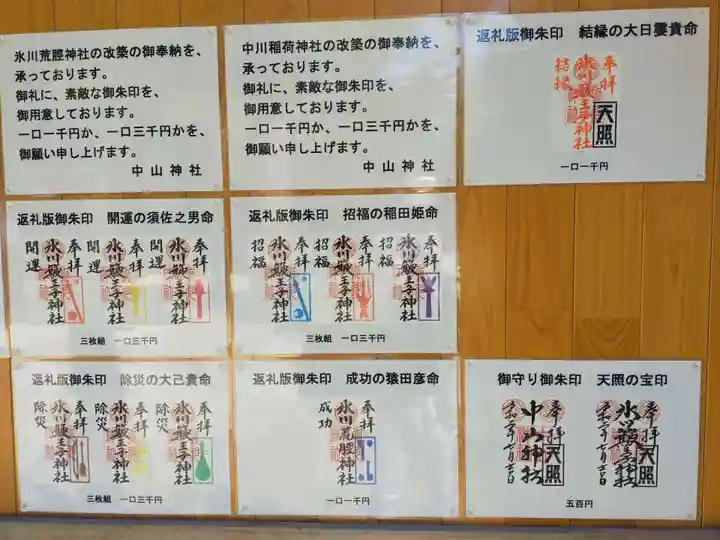 氷川荒脛神社の改築の御奉納を、
承っております。
御礼に、素敵な御朱印を、
御用意しております。
一口一千円か、一口三千円かを、
御願い申し上げます。
中山神社
中川稲荷神社の改築の御奉納を、
承っております。
御礼に、素敵な御朱印を、
御用意しております。
一口一千円か、一口三千円かを、
御願い申し上げます。
中山神社
返礼版御朱印 結縁の大日孁貴命
奉拝
氷川簸王子神社
結縁
天照
一口一千円
返礼版御朱印 開運の須佐之男命
奉拝
氷川簸王子神社
開運
奉拝
氷川簸王子神社
開運
奉拝
氷川簸王子神社
開運
三枚組 一口三千円
返礼版御朱印 招福の稲田姫命
奉拝
氷川簸王子神社
招福
奉拝
氷川簸王子神社
招福
奉拝
氷川簸王子神社
招福
三枚組 一口三千円
返礼版御朱印 除災の大己貴命
奉拝
氷川簸王子神社
除災
奉拝
氷川簸王子神社
除災
奉拝
氷川簸王子神社
除災
三枚組 一口三千円
返礼版御朱印 成功の猿田彦命
奉拝
氷川荒脛神社
成功
一口一千円
御守り御朱印 天照の宝印
奉拝
天照
中山神社
奉拝
天照
氷川簸王子神社
五百円